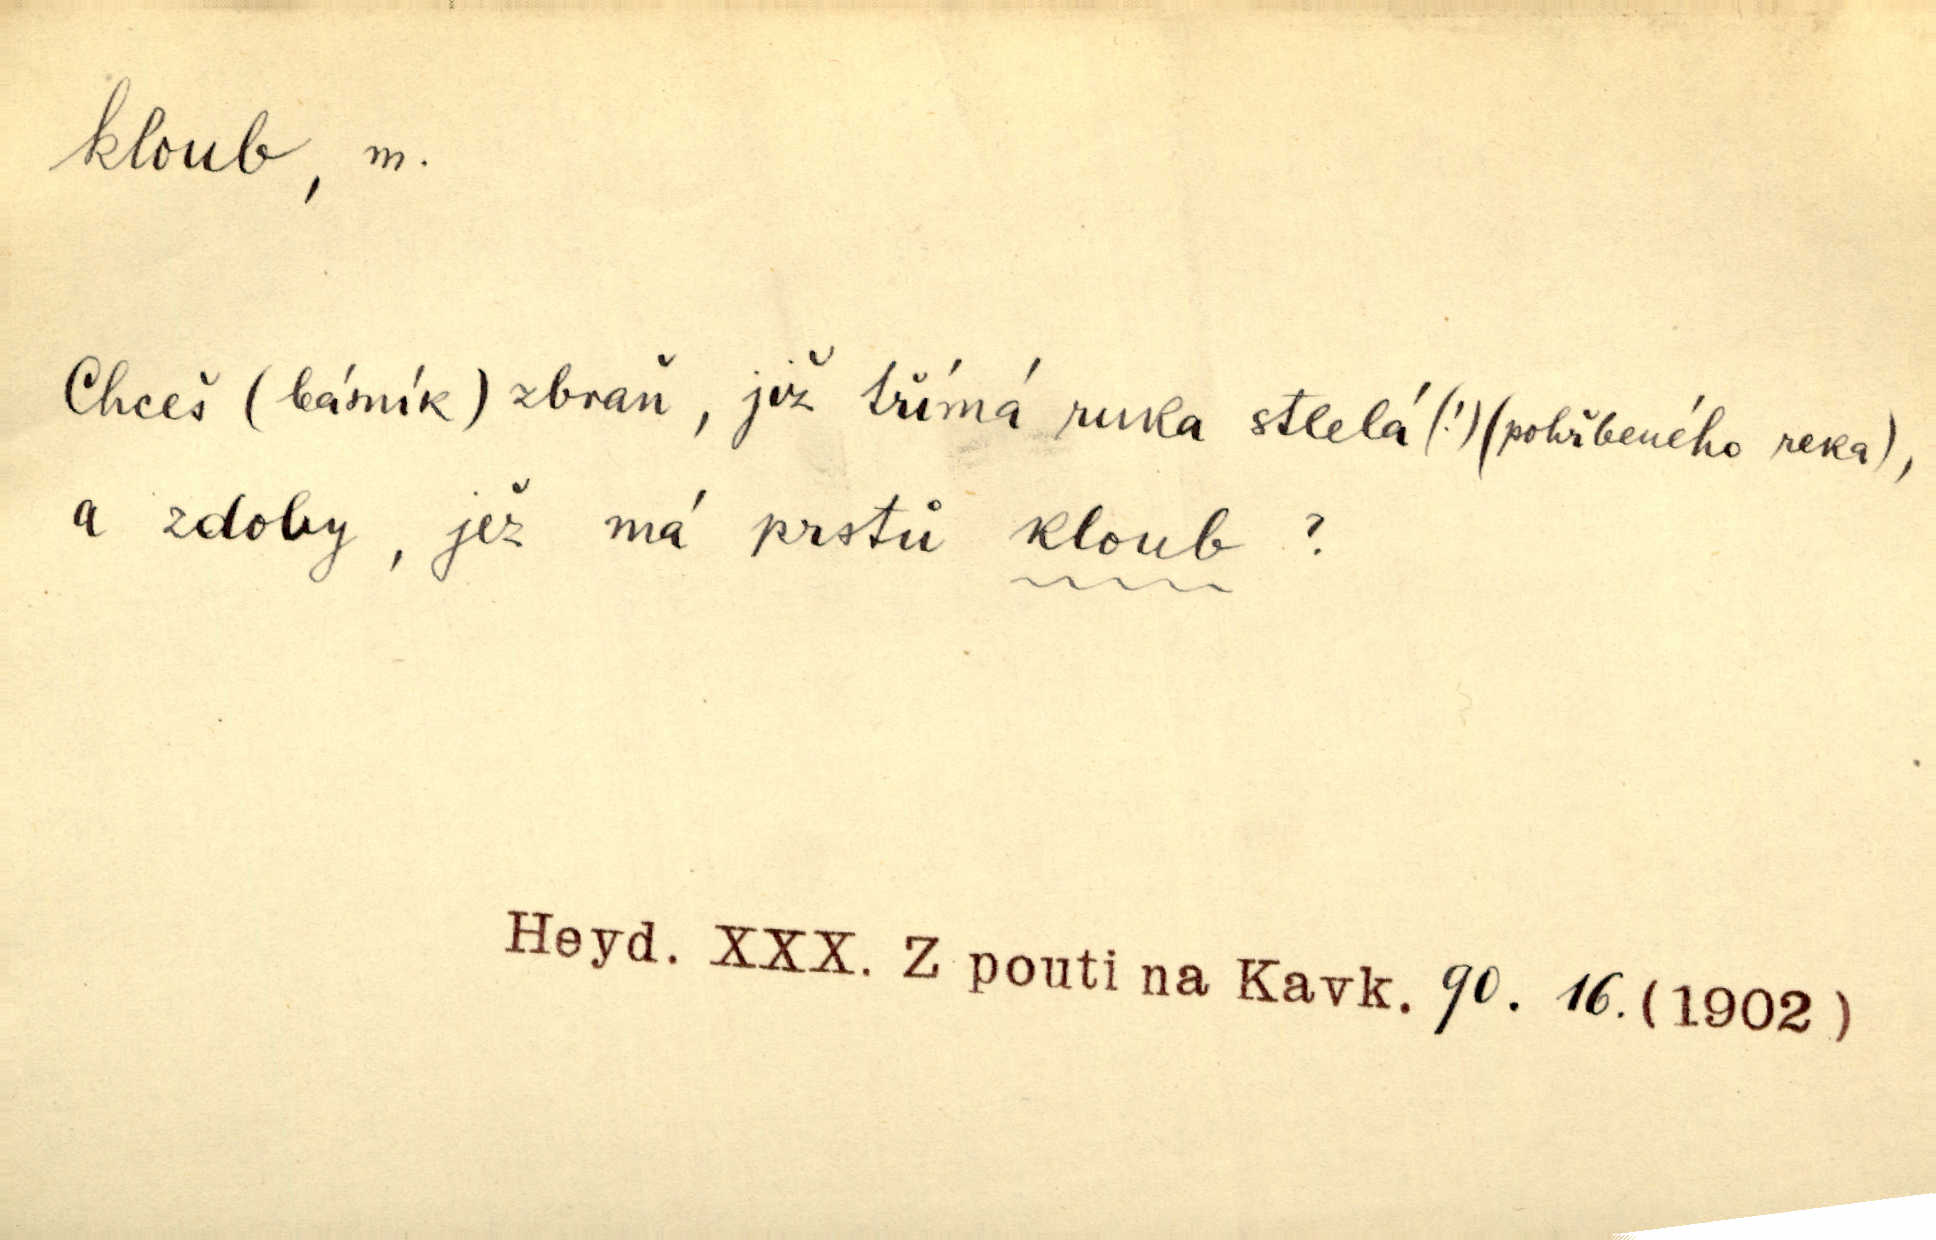 kloub, m.
Chceš (básník) zbraň, již třímá ruka stlelá (!) (pohřbeného reka),
a zdoby, jež má prstů kloub ?
Heyd. XXX. Z pouti na Kavk. 90. 16. (1902)